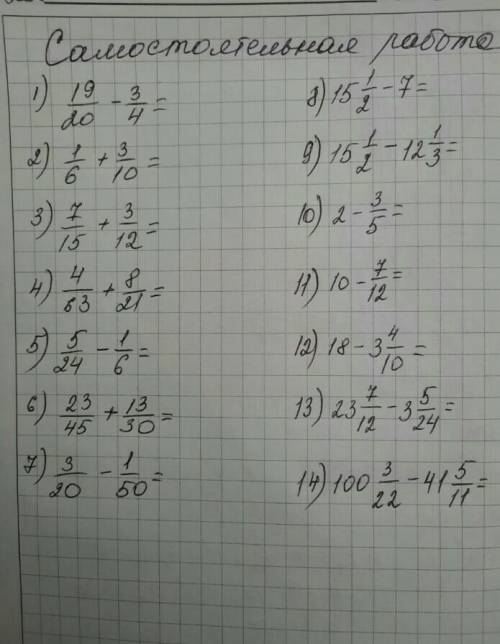 Самостоятельная работа
1) 19/20 - 3/4 =
2) 1/6 + 3/10 =
3) 7/15 + 3/12 =
4) 4/63 + 8/21 =
5) 5/24 - 1/6 =
6) 23/45 + 13/30 =
7) 3/20 - 1/50 =
8) 15 1/2 - 7 =
9) 15 1/2 - 12 1/3 =
10) 2 - 3/5 =
11) 10 - 7/12 =
12) 18 - 3 4/10 =
13) 23 7/12 - 3 5/24 =
14) 100 3/22 - 41 5/11 =